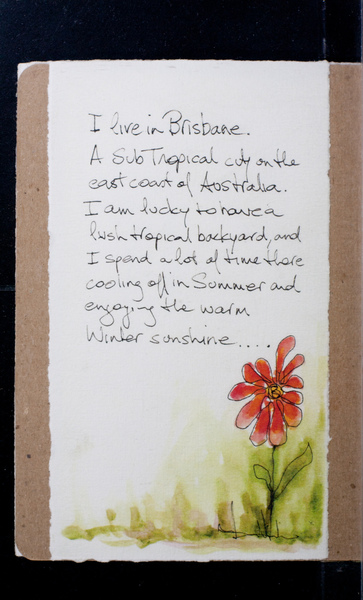 I live in Brisbane.
A SubTropical city on the
east coast of Australia.
I am lucky to have a
lush tropical backyard, and
I spend a lot of time there
cooling off in Summer and
enjoying the warm
Winter sunshine.....